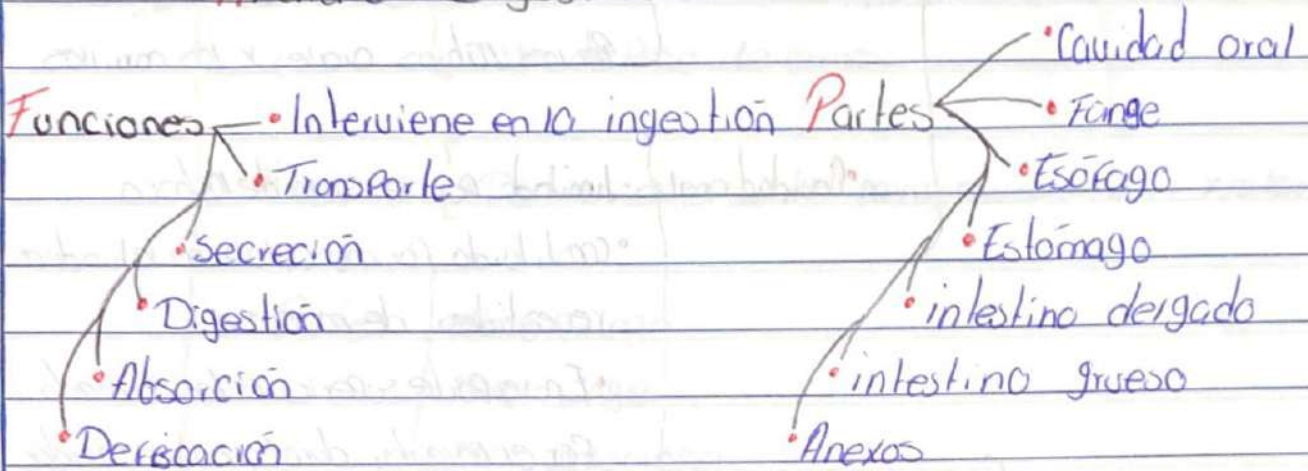 Funciones • Interviene en la ingestión
• Transporte
• Secreción
• Digestión
• Absorción
• Defecación
Partes • Cavidad oral
• Faringe
• Esófago
• Estómago
• intestino delgado
• intestino grueso
• Anexos